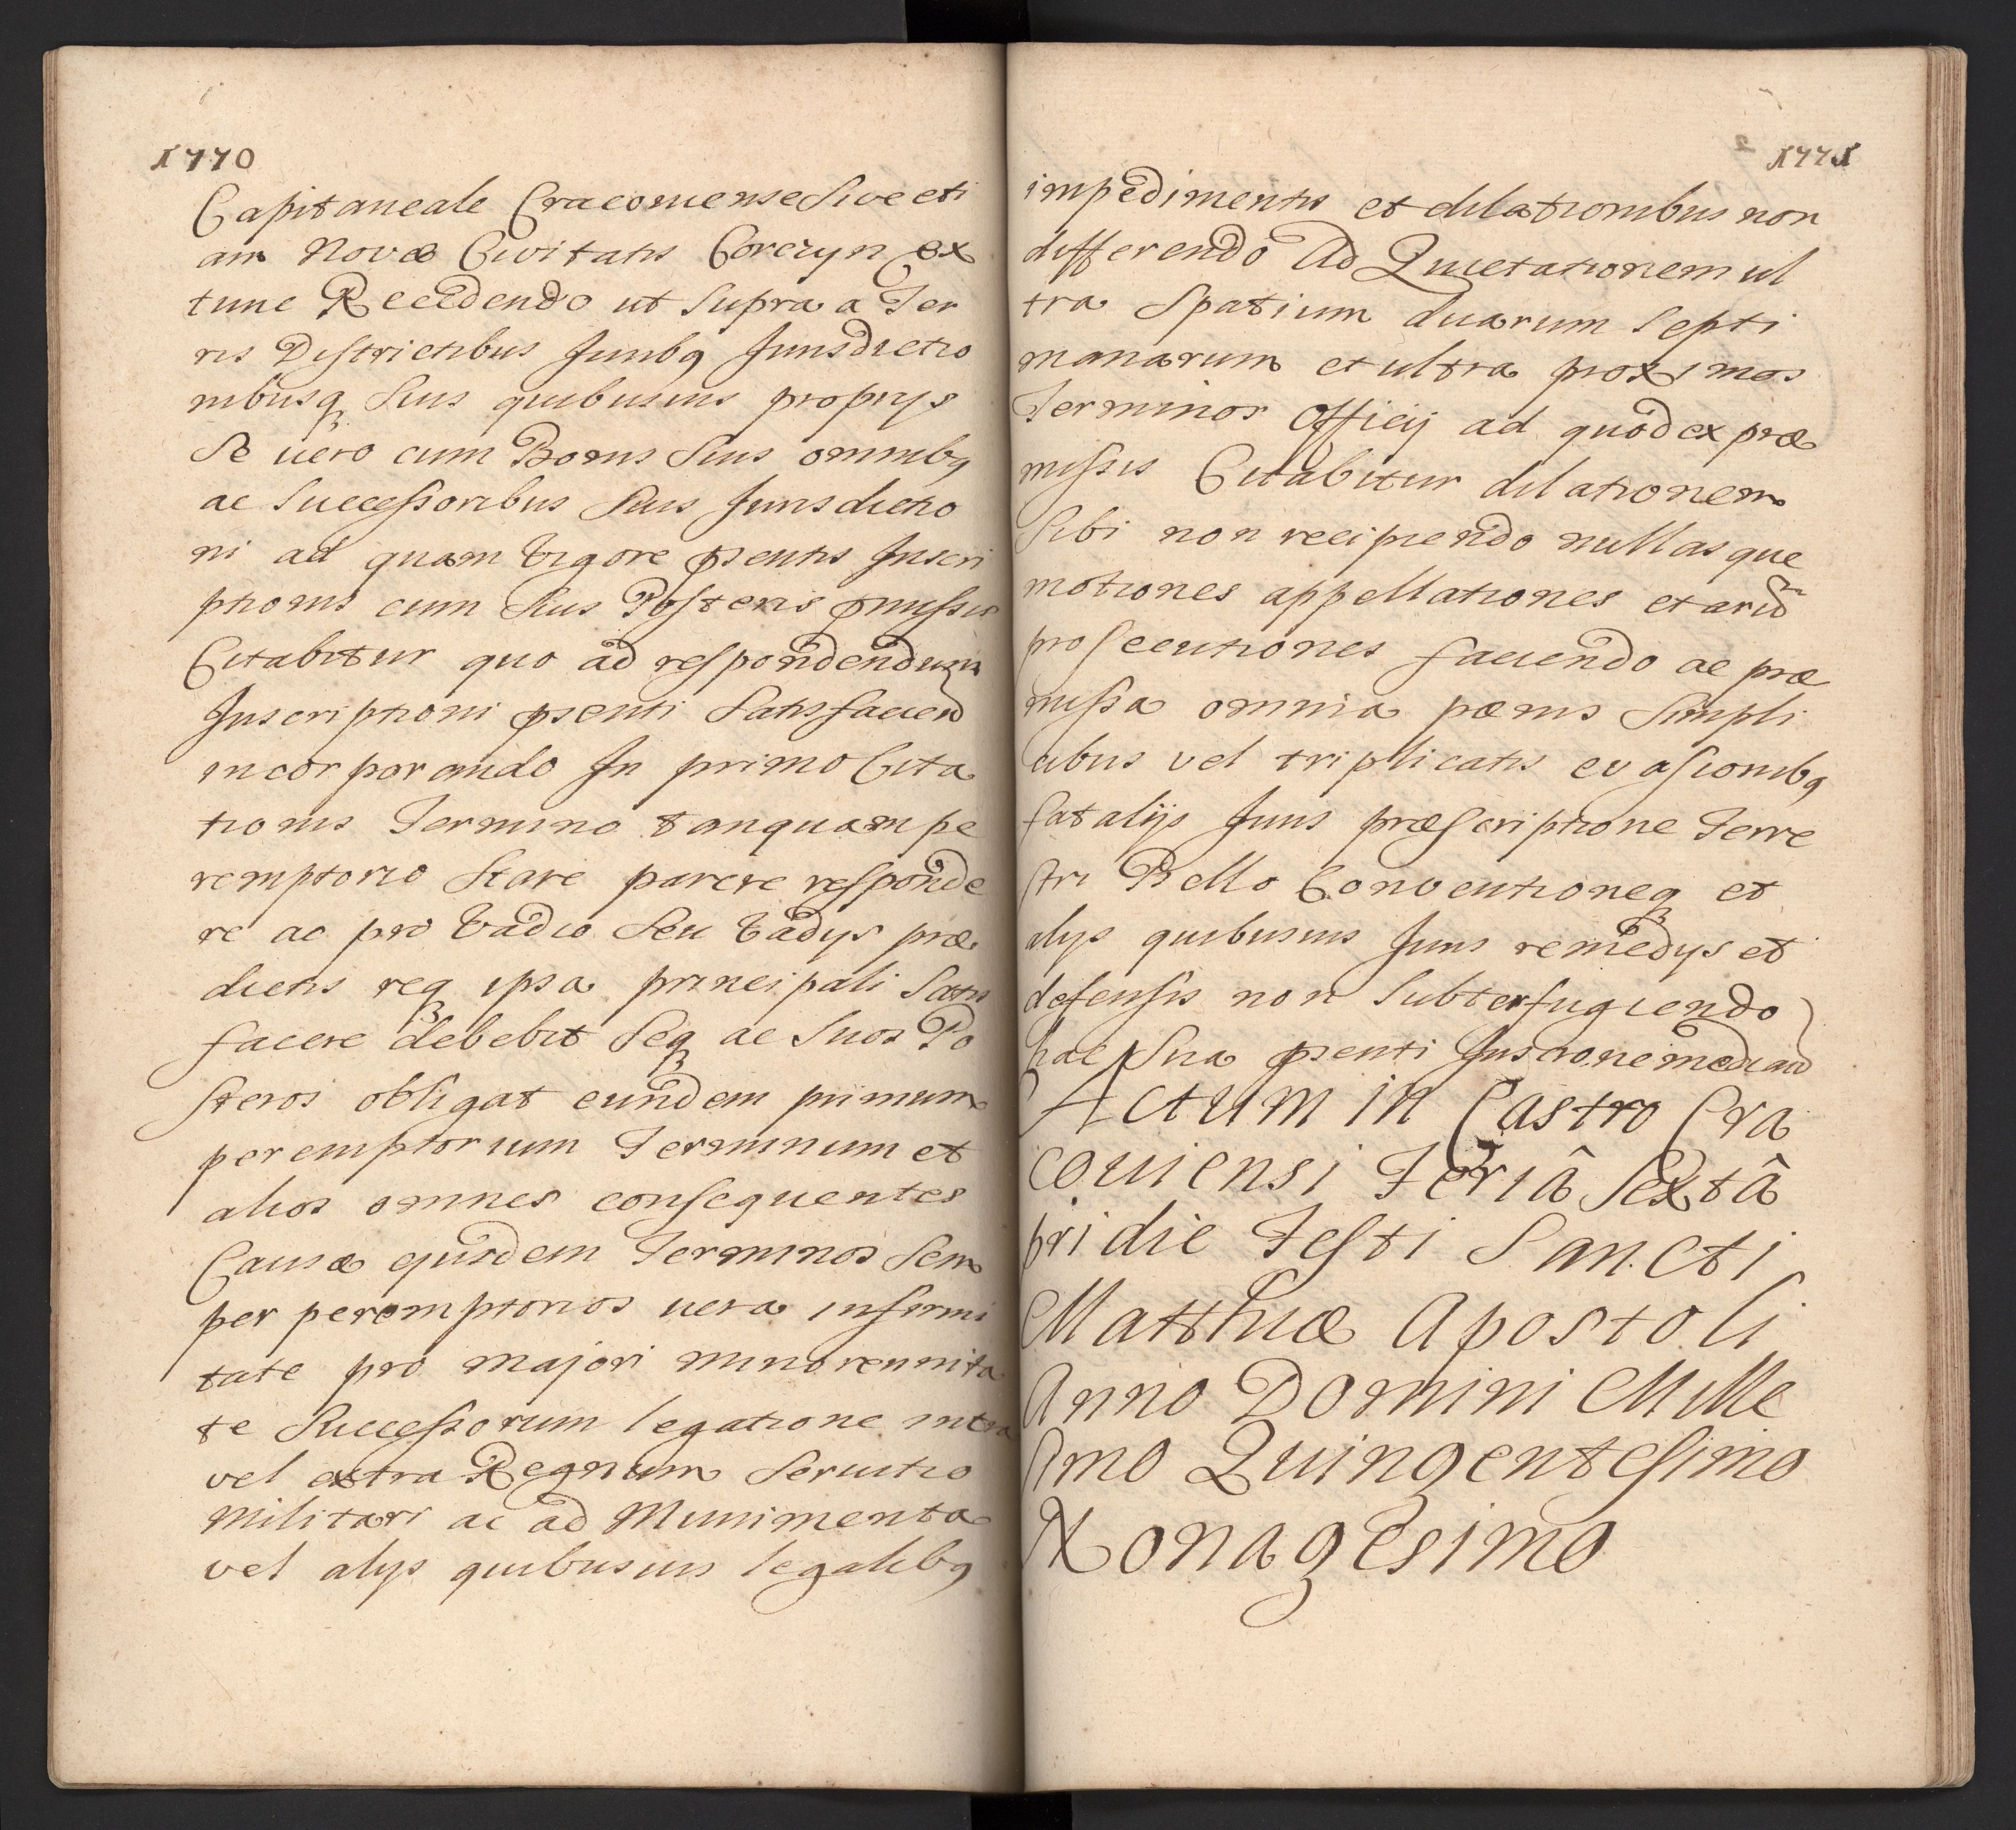 1770
Capitaneale Cracoviense Sive eti
am Novæ Civitatis Corczyn ex
tunc Recedendo ut Supra a Ter
ris Districtibus Juribq Jurisdictio
nibusq Suis quibusuis proprys
Se uero cum Bonis Suis omnibq
ac Successoribus Suis Jurisdictio
ni ad quam Vigore pſentis Inscri
ptionis cum Suis Posteris pmissis
Citabitur quo ad respondendum
Inscriptioni pſenti Satisfaciend
incorporando In primo Cita
tionis Termino tanquam pe
remptorio Stare parere responde
re ac pro Vadio Seu Vadys præ
dictis req ipsa principali Satis
facere debebit Seq ac Suos Po
steros obligat eundem primum
peremptorium Terminum et
alios omnes consequentes
Causæ ejusdem Terminos Sem
per peremptorios uera infirmi
tate pro majori minorennita
te Successorum legatione intra
vel extra Regnum Seruitio
Militari ac ad Munimenta
vel alys quibusuis legalibq
1771
impedimentis et dilationibus non
differendo Ad Quietationem ul
tra Spatium duarum Septi
manarum et ultra proximos
Terminos Officij ad quod ex præ
missis Citabitur dilationem
Sibi non recipiendo nullasque
motiones appellationes et earūd
prosecutiones faciendo ac præ
missa omnia pœnis Simpli
cibus vel triplicatis evasionibq
fatalijs Juris præscriptione Terre
stri Bello Conventioneq et
alys quibusuis Juris remedys et
defensis non Subterfugiendo
hac Sua pſenti Inscrone mediand
Actum in Castro Cra
coviensi Feriâ Sextâ
pridie Festi Sancti
Matthiæ Apostoli
Anno Domini Mille
simo Quingentesimo
Nonagesimo